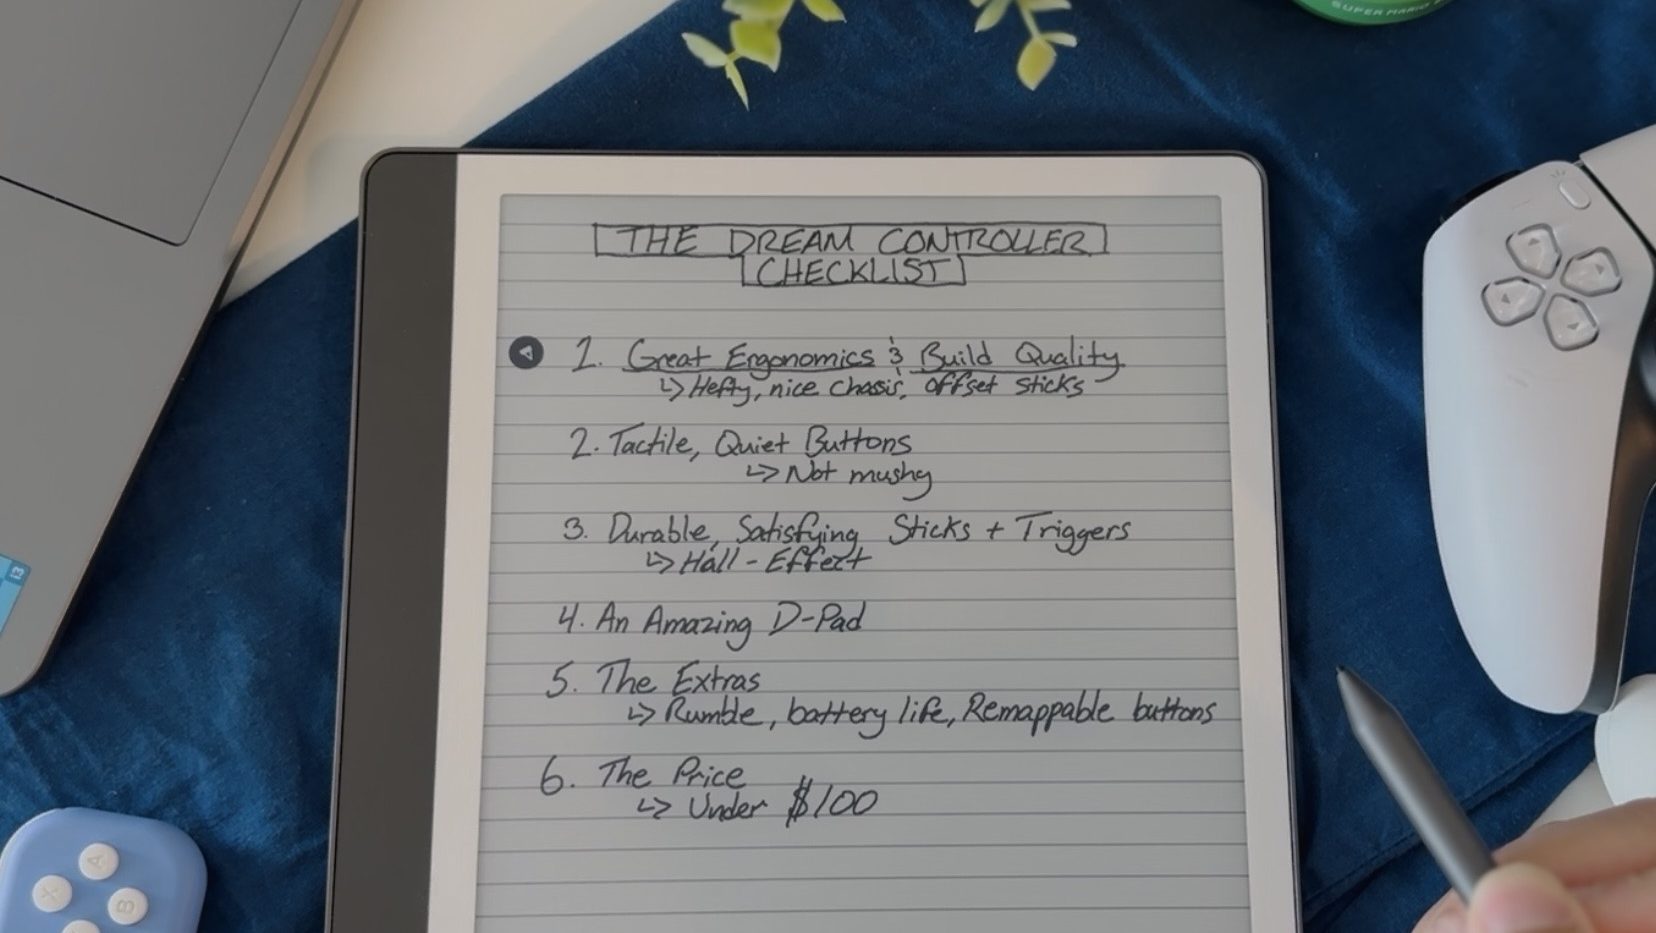 SUPER MARIO
THE DREAM CONTROLLER
CHECKLIST
1. Great Ergonomics & Build Quality
↳ Hefty, nice chassis, offset sticks
2. Tactile, Quiet Buttons
↳ Not mushy
3. Durable, Satisfying Sticks + Triggers
↳ Hall-Effect
4. An Amazing D-Pad
5. The Extras
↳ Rumble, battery life, Remappable buttons
6. The Price
↳ Under $100
i3
A
X
B